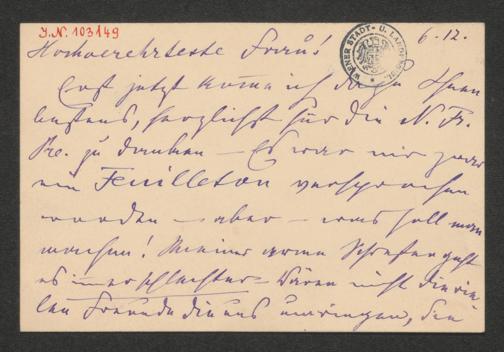 J.N. 103149
WIENER STADT- U. LANDES
6.12.
Hochverehrteste Frau!
Erst jetzt komme ich dazu Ihnen
bestens, herzlichst für die N. Fr.
Pr. zu danken – Es war mir zwar
ein Feuilleton versprochen
worden – aber – was soll man
machen! Meiner armen Schwester geht
es immer schlechter – Wären nicht die vie-
len Freunde die uns umringen, die